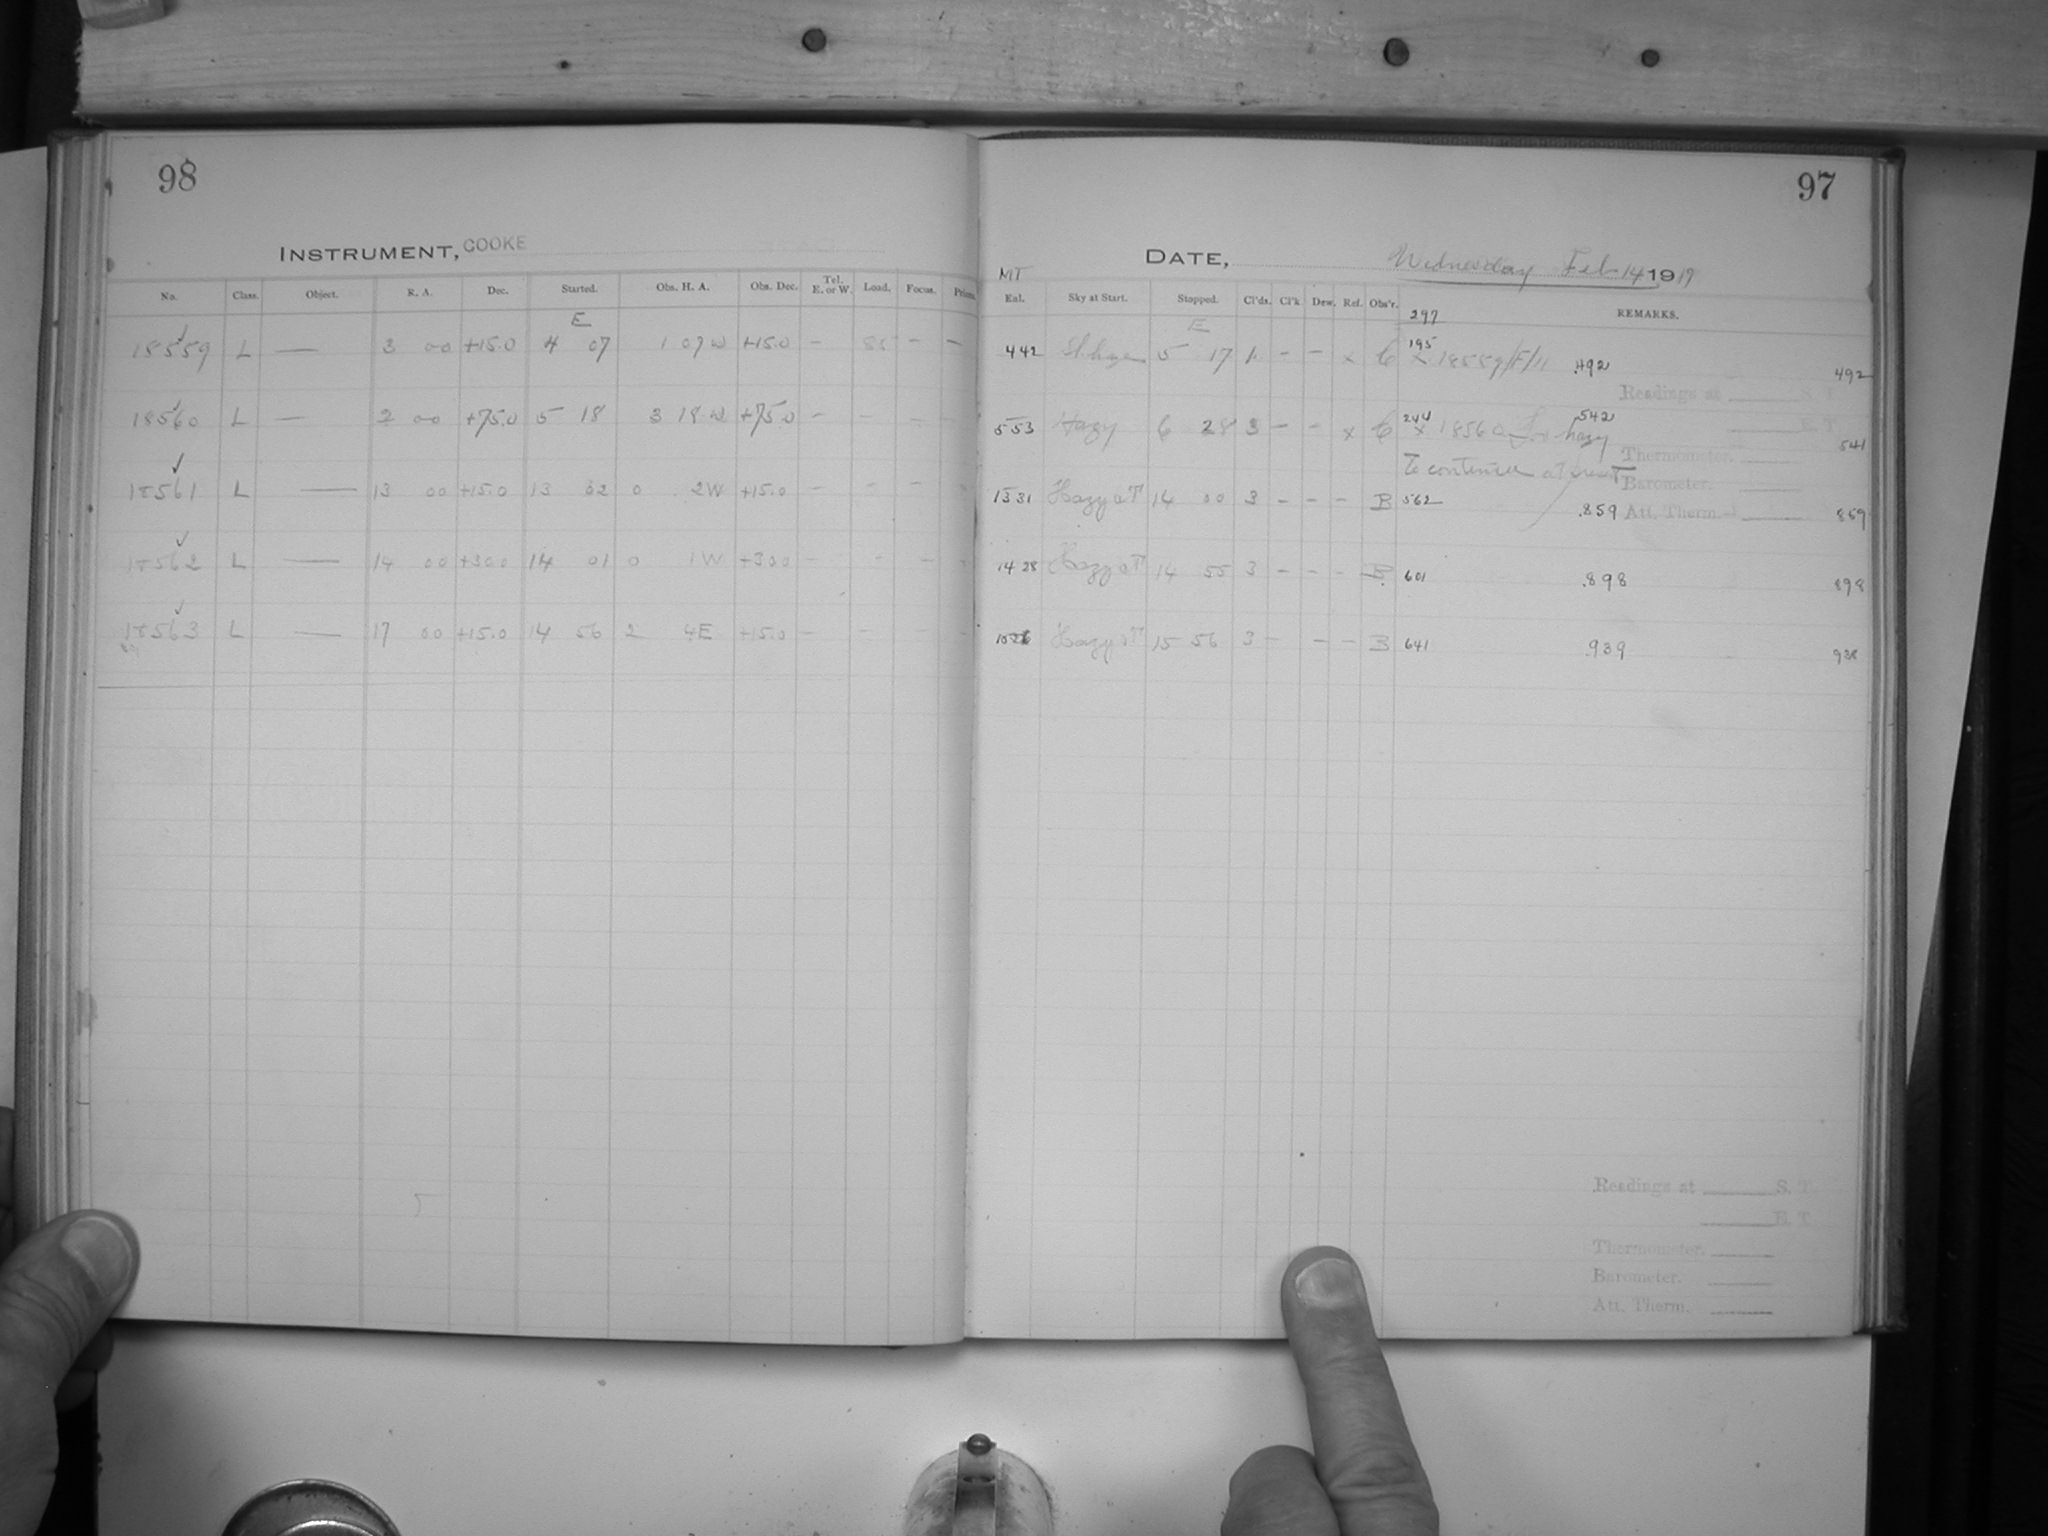 98
INSTRUMENT, COOKE
No. Class. Object. R. A. Dec. Started. Obs. H. A. Obs. Dec. Tel. E. or W. Load. Focus. Prisms
E
18559 L — 3 00 +15.0 4 07 1 07 W +15.0 — — —
18560 L — 2 00 +75.0 5 18 3 18 W +75.0 — — —
18561 L — 13 00 +15.0 13 02 0 2W +15.0 — — —
18562 L — 14 00 +30.0 14 01 0 1W +30.0 — — —
18563 L — 17 00 +15.0 14 56 2 4E +15.0 — — —
97
DATE, Wednesday Feb 14 1917
MT
Eal. Sky at Start. Stopped. Cl'ds. Cl'k. Dew. Ref. Obs'r. REMARKS.
E 297
442 Sl. haze 5 17 — — x C 195 x 18559 .492 492
Readings at S. T.
553 Hazy 6 28 3 — — x C 244 x 18560 hazy .542 541
Thermometer.
to continue at present
Barometer.
1331 Hazy 14 00 3 — — — B 562 .859 859
Att. Therm.
1428 Hazy 14 55 3 — — — B 601 .898 898
Hazy 15 56 3 — — — B 641 .939 938
Readings at S. T.
Thermometer.
Barometer.
Att. Therm.